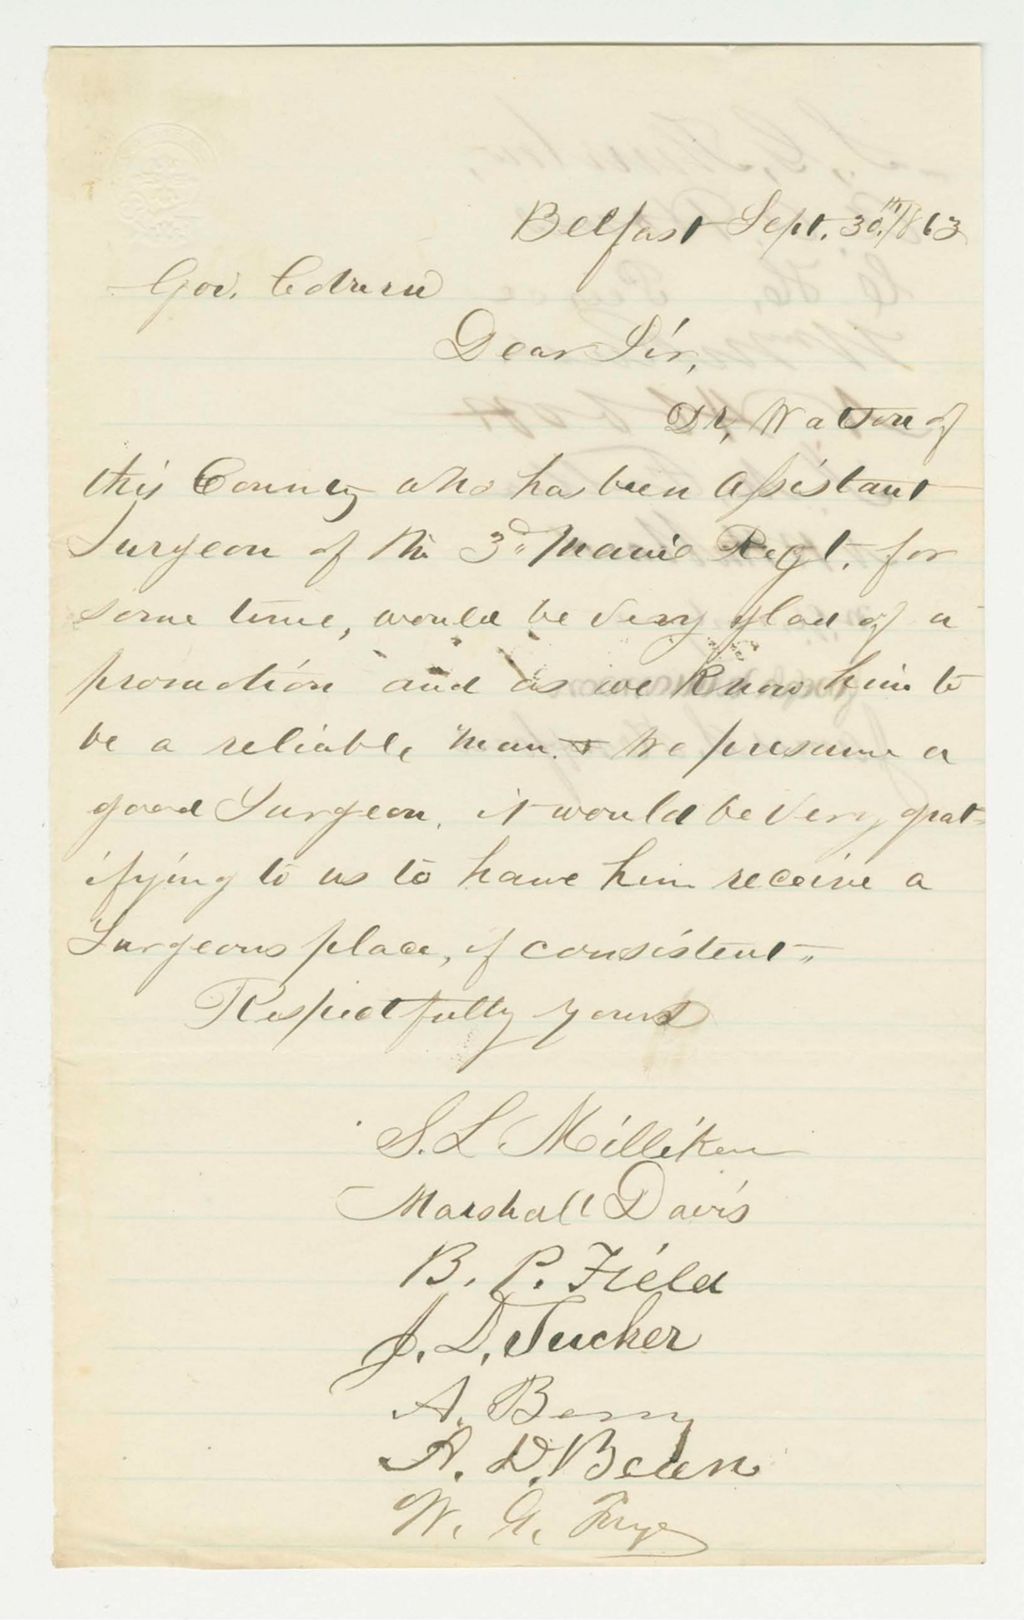 Belfast Sept. 30.th/863
Gov. Coburn
Dear Sir,
Dr, Watson of
this County who has been Assistant
Surgeon of the 3d Maine Regt. for
some time, would be very glad of a
promotion and as we know him to
be a reliable man. & we presume a
good Surgeon, it would be very grat-
ifying to us to have him receive a
Surgeons place, if consistent.
Respectfully yours
S. L. Milliken
Marshall Davis
B. P. Field
J. D. Tucker
A. Berry
A. D. Bean
W. G. Frye